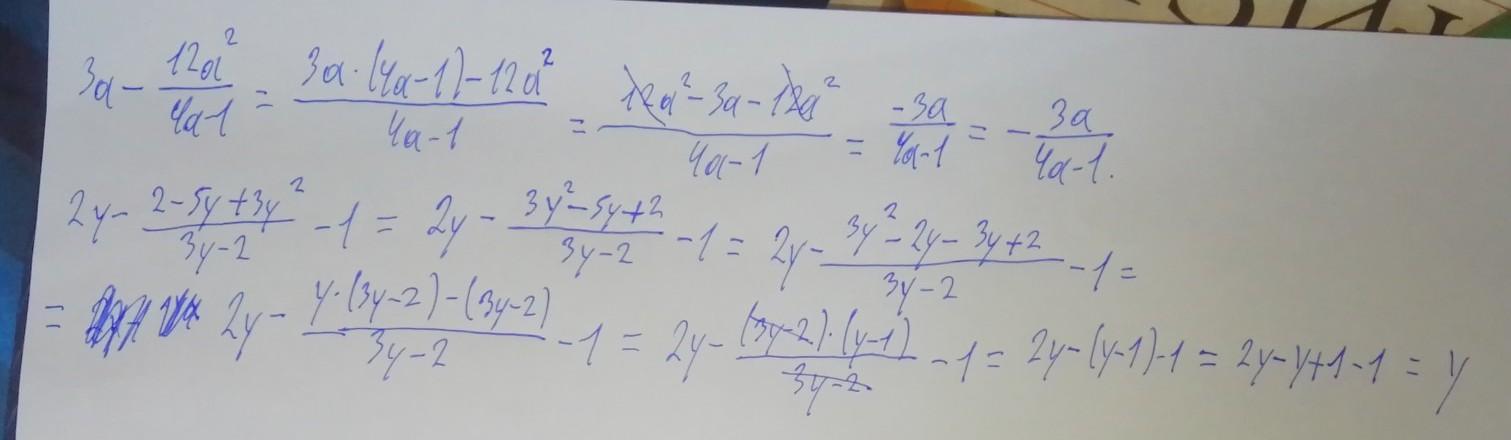 3a - \frac{12a^2}{4a-1} = \frac{3a·(4a-1)-12a^2}{4a-1} = \frac{12a^2-3a-12a^2}{4a-1} = \frac{-3a}{4a-1} = -\frac{3a}{4a-1}.
2y - \frac{2-5y+3y^2}{3y-2} - 1 = 2y - \frac{3y^2-5y+2}{3y-2} - 1 = 2y - \frac{3y^2-2y-3y+2}{3y-2} - 1 =
= 2y - \frac{y·(3y-2)-(3y-2)}{3y-2} - 1 = 2y - \frac{(3y-2)·(y-1)}{3y-2} - 1 = 2y-(y-1)-1 = 2y-y+1-1 = y